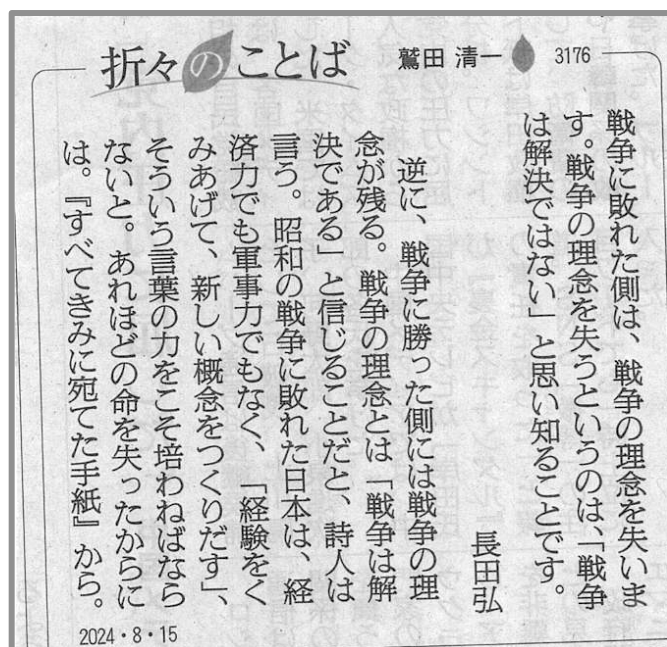 折々のことば 鷲田 清一 3176
戦争に敗れた側は、戦争の理念を失いま
す。戦争の理念を失うというのは、「戦争
は解決ではない」と思い知ることです。
長田弘
逆に、戦争に勝った側には戦争の理
念が残る。戦争の理念とは「戦争は解
決である」と信じることだと、詩人は
言う。昭和の戦争に敗れた日本は、経
済力でも軍事力でもなく、「経験をく
みあげて、新しい概念をつくりだす」、
そういう言葉の力をこそ培わねばなら
ないと。あれほどの命を失ったからに
は。『すべてきみに宛てた手紙』から。
2024・8・15